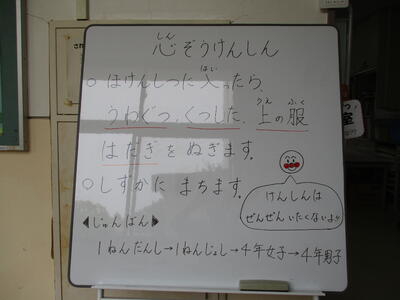 心ぞうけんしん
しん
○ ほけんしつに入ったら、
はい
うわぐつ、くつした、上の服
うえ
ふく
はだぎをぬぎます。
○しずかに まちます。
けんしんは
ぜんぜんいたくないよ♪
◀じゅんばん▶
1ねんだんし→1ねんじょし→4年女子→4年男子
室